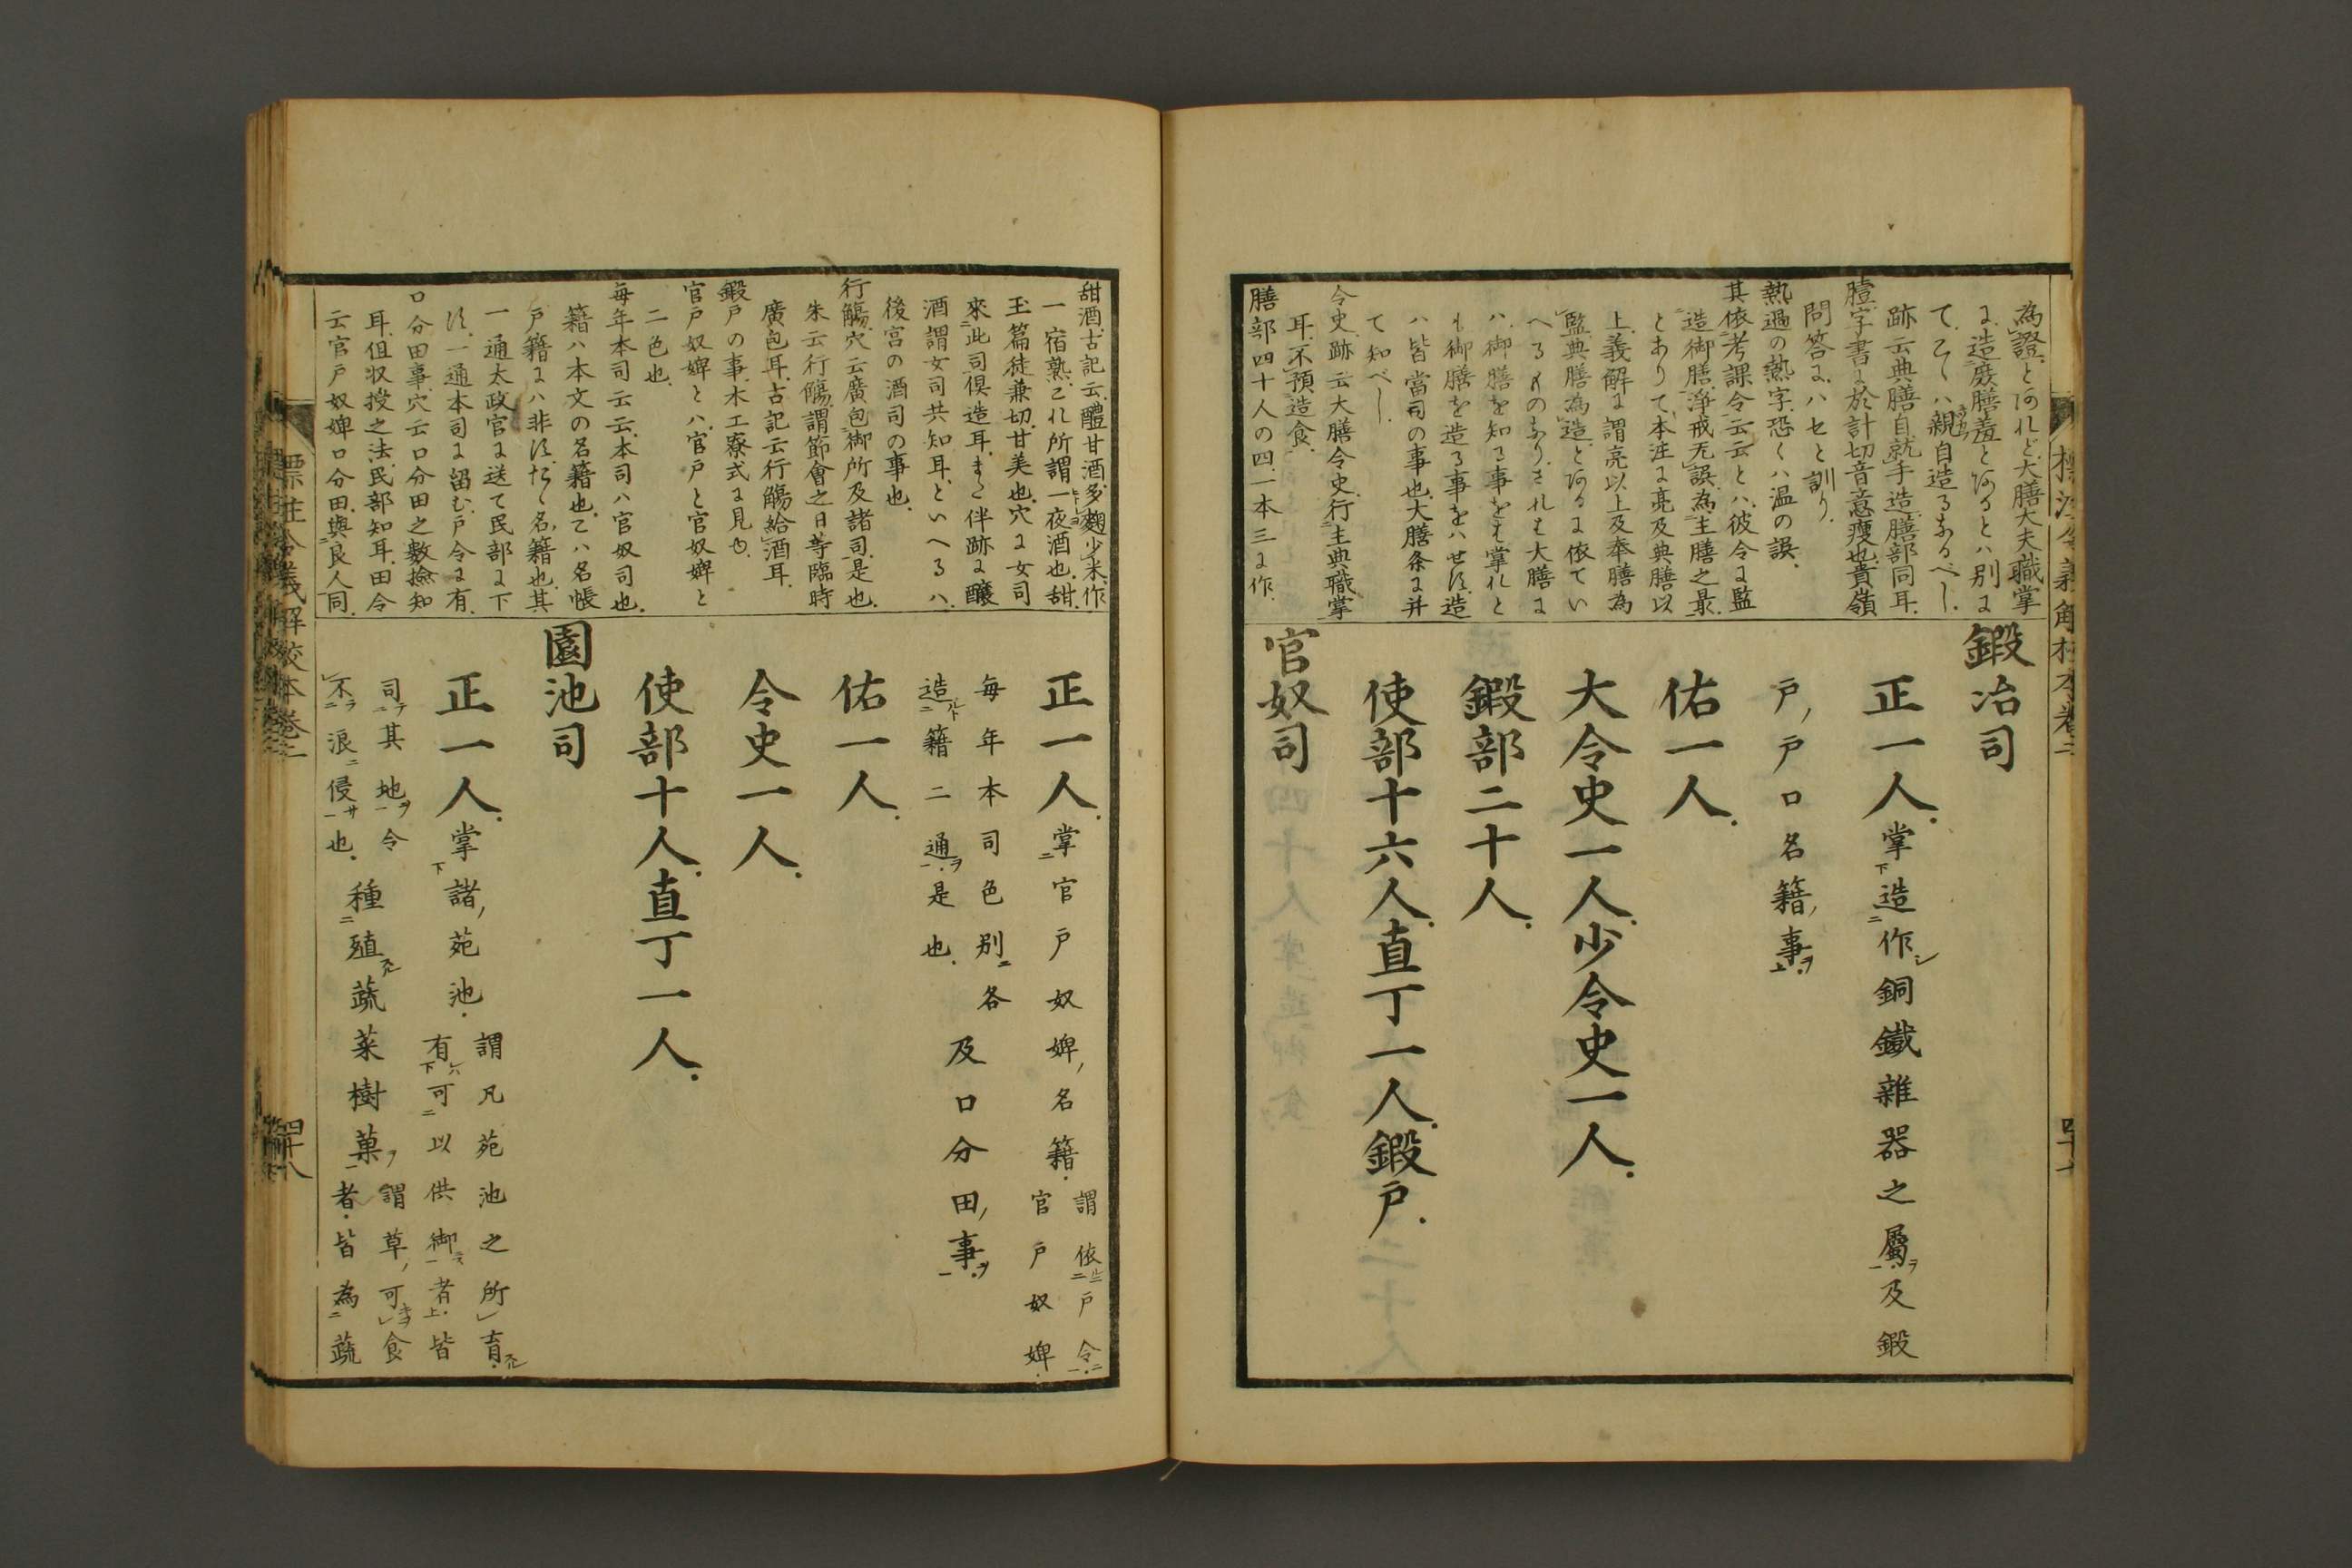 為證とあれど大膳大夫職掌
に造庶膳羞とあるとハ別に
てこゝハ親自造るあるべし
跡云典膳自就手造膳部同耳
膻字書に於計切音意瘦也貴嶺
問答にハセと訓り
熱過の熱字恐くハ温の誤
其依考課令云云とハ彼令に監
造御膳淨戒无誤為主膳之最
とありて本注に亮及典膳以
上義解に謂亮以上及奉膳為
監典膳為造とあるに依てい
へるものなりされも大膳に
ハ御膳を知る事をも掌れと
も御膳を造る事をハせす造
ハ皆當司の事也大膳条に并
て知べし
令史跡云大膳令史行主典職掌
耳不預造食
膳部四十人の四一本三に作
鍛冶司
正一人掌造作銅鐵雜器之屬及鍛
戸戸口名籍事
佑一人
大令史一人少令史一人
鍛部二十人
使部十六人直丁一人鍛戸
官奴司
標注令義解校本卷二
四十七
甜酒古記云醴甘酒多麹少米作
一宿熟これ所謂一夜酒也甜
玉篇徒兼切甘美也穴に女司
來此司倶造耳また伴跡に釀
酒謂女司共知耳といへるハ
後宮の酒司の事也
行觴穴云廣包御所及諸司是也
朱云行觴謂節會之日等臨時
廣包耳古記云行觴給酒耳
鍛戸の事木工寮式に見ゆ
官戸奴婢とハ官戸と官奴婢と
二色也
毎年本司云云本司ハ官奴司也
籍ハ本文の名籍也こハ名帳
戸籍にハ非すたゝ名籍也其
一通太政官に送て民部に下
す一通本司に留む戸令に有
口分田事穴云口分田之數撿知
耳但収授之法民部知耳田令
云官戸奴婢口分田與良人同
正一人掌官戸奴婢名籍謂依戸令官戸奴婢
毎年本司色別各造籍二通是也及口分田事
佑一人
令史一人
使部十人直丁一人
園池司
正一人掌諸苑池謂凡苑池之所育有可以供御者皆
司其地令不浪侵也種殖蔬菜樹菓謂草可食者皆為蔬
標注令義解校本卷二
四十八